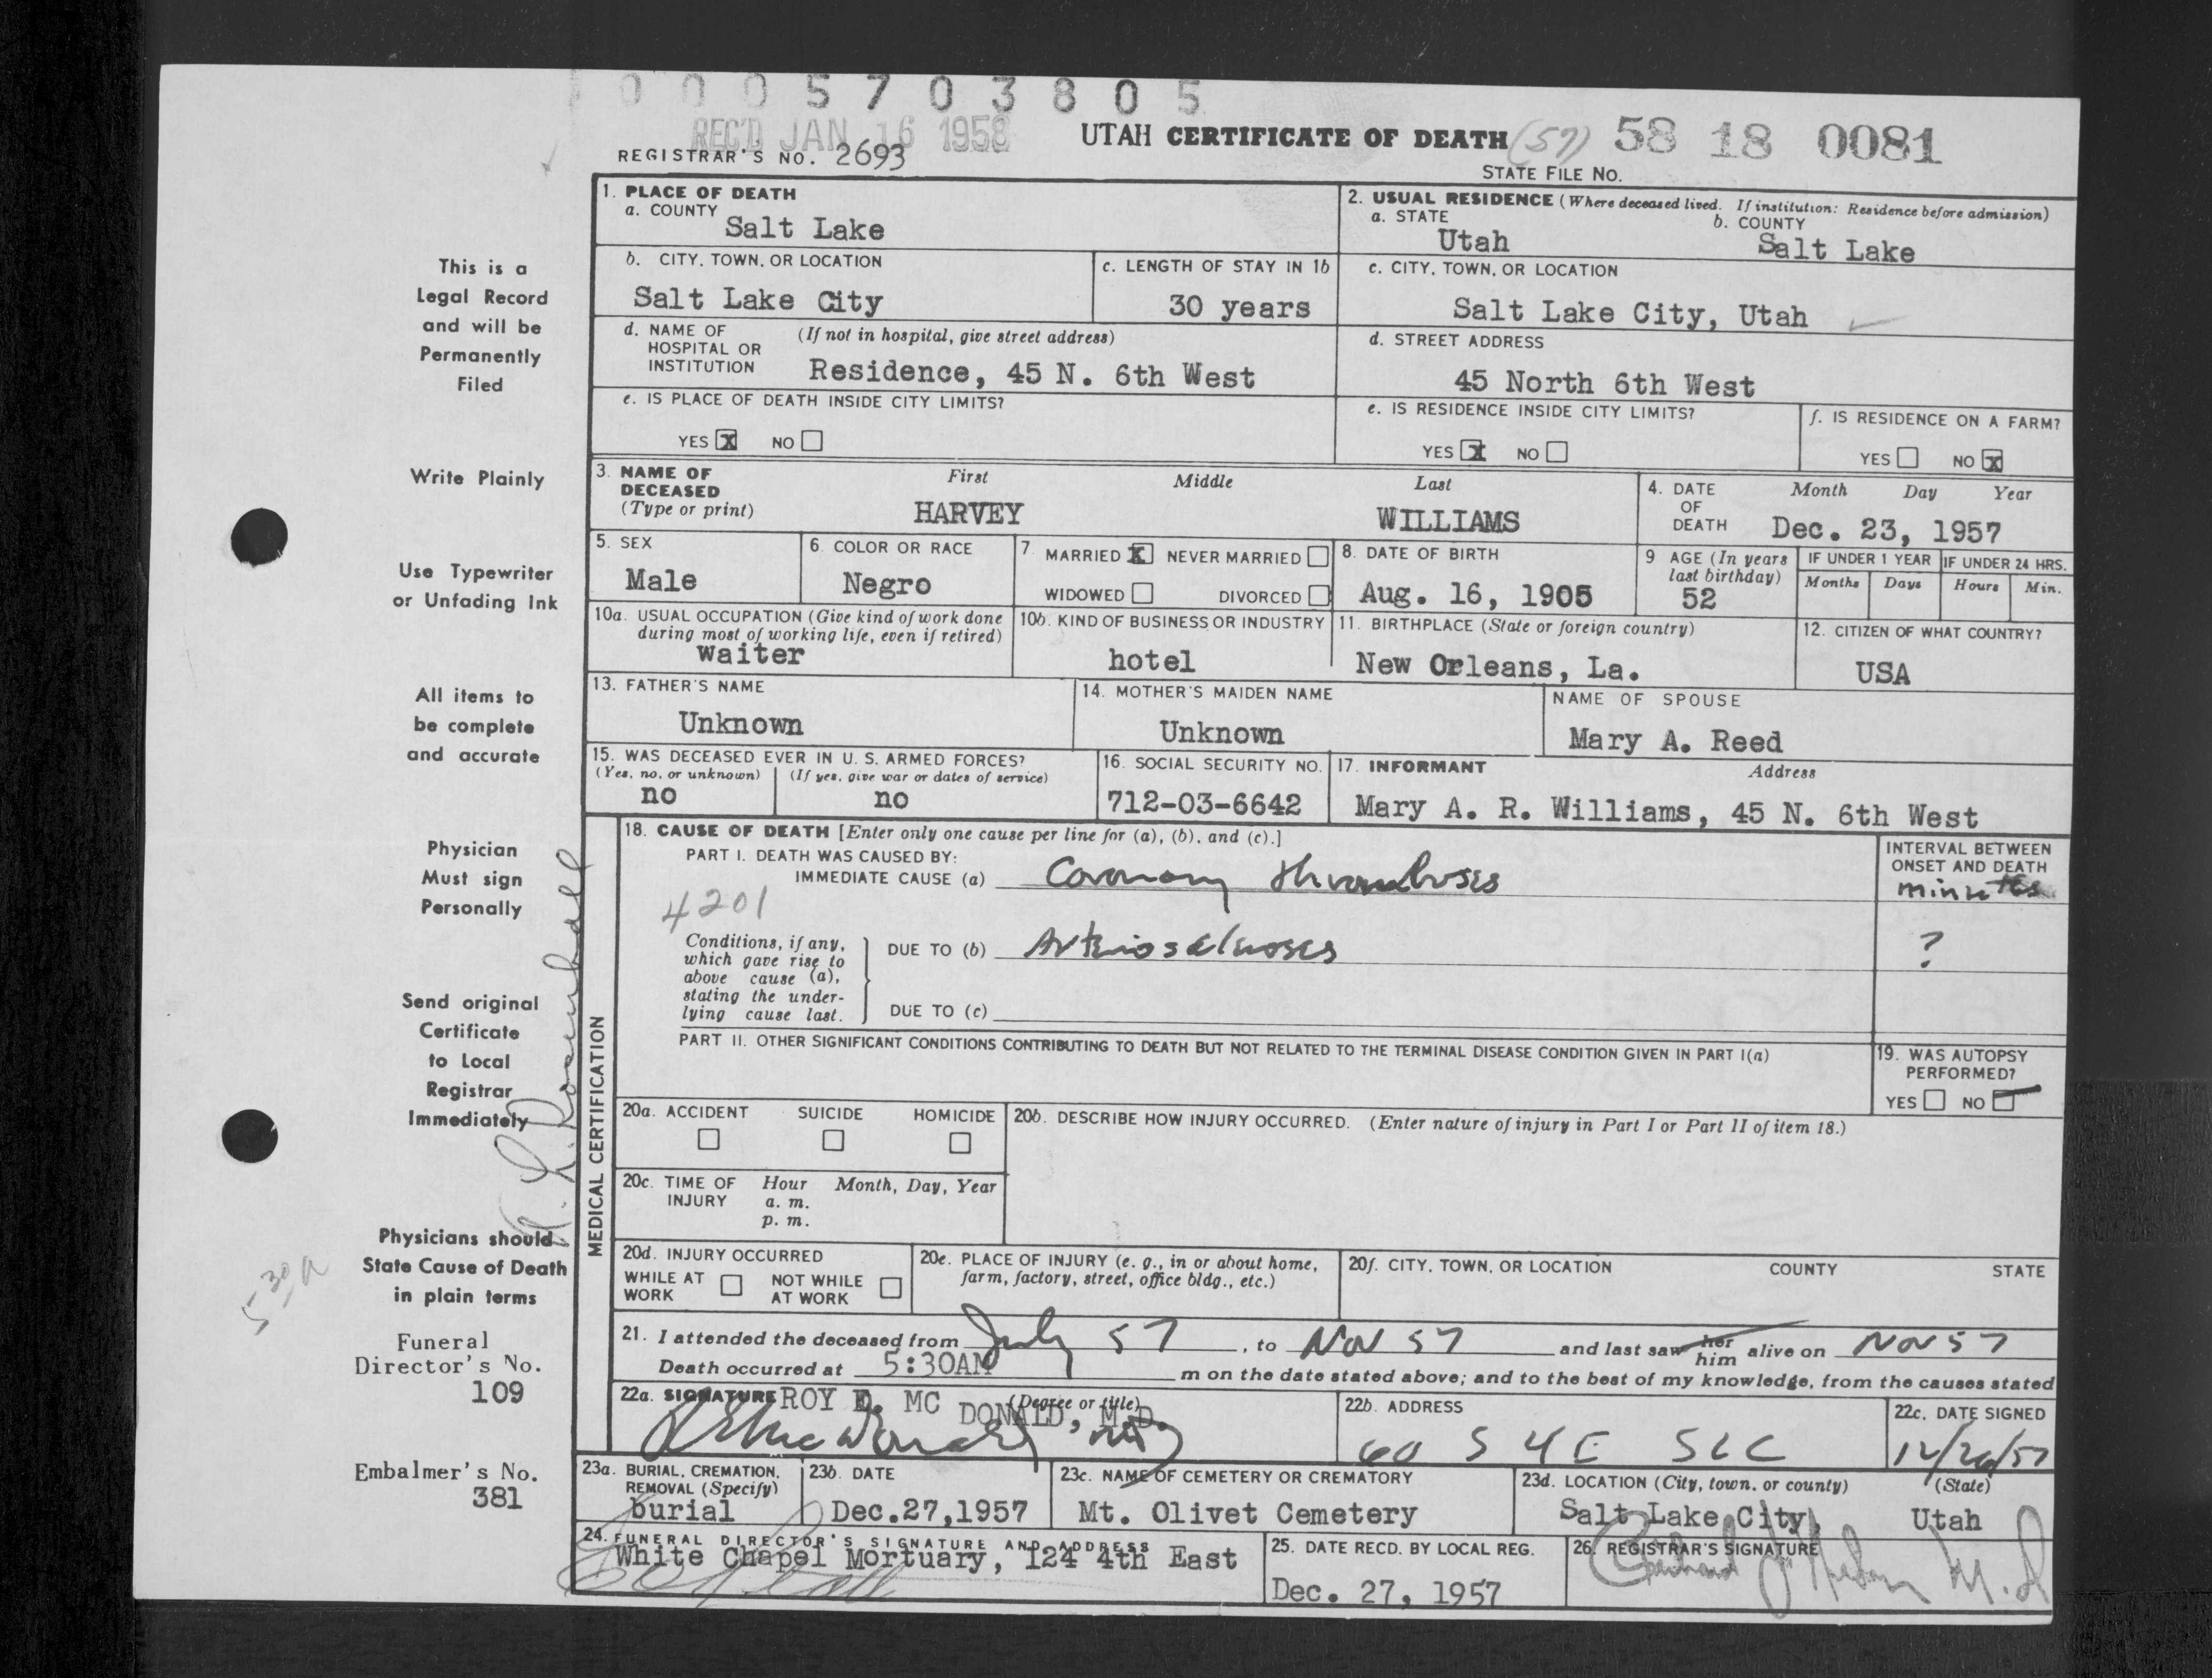 0005703805
REC'D JAN 16 1958
UTAH CERTIFICATE OF DEATH (57) 58 18 0081
REGISTRAR'S NO. 2693
STATE FILE NO.
This is a
Legal Record
and will be
Permanently
Filed
Write Plainly
Use Typewriter
or Unfading Ink
All items to
be complete
and accurate
Physician
Must sign
Personally
Send original
Certificate
to Local
Registrar
Immediately
Physicians should
State Cause of Death
in plain terms
5 30 a
Funeral
Director's No.
109
Embalmer's No.
381
1. PLACE OF DEATH
a. COUNTY
Salt Lake
2. USUAL RESIDENCE (Where deceased lived. If institution: Residence before admission)
a. STATE
Utah
b. COUNTY
Salt Lake
b. CITY, TOWN, OR LOCATION
Salt Lake City
c. LENGTH OF STAY IN 1b
30 years
c. CITY, TOWN, OR LOCATION
Salt Lake City, Utah
d. NAME OF HOSPITAL OR INSTITUTION (If not in hospital, give street address)
Residence, 45 N. 6th West
d. STREET ADDRESS
45 North 6th West
e. IS PLACE OF DEATH INSIDE CITY LIMITS?
YES X NO
e. IS RESIDENCE INSIDE CITY LIMITS?
YES X NO
f. IS RESIDENCE ON A FARM?
YES NO X
3. NAME OF DECEASED (Type or print)
First Middle Last
HARVEY WILLIAMS
4. DATE OF DEATH Month Day Year
Dec. 23, 1957
5. SEX
Male
6. COLOR OR RACE
Negro
7. MARRIED X NEVER MARRIED
WIDOWED DIVORCED
8. DATE OF BIRTH
Aug. 16, 1905
9 AGE (In years last birthday)
52
IF UNDER 1 YEAR IF UNDER 24 HRS.
Months Days Hours Min.
10a. USUAL OCCUPATION (Give kind of work done during most of working life, even if retired)
waiter
10b. KIND OF BUSINESS OR INDUSTRY
hotel
11. BIRTHPLACE (State or foreign country)
New Orleans, La.
12. CITIZEN OF WHAT COUNTRY?
USA
13. FATHER'S NAME
Unknown
14. MOTHER'S MAIDEN NAME
Unknown
NAME OF SPOUSE
Mary A. Reed
15. WAS DECEASED EVER IN U. S. ARMED FORCES?
(Yes, no, or unknown) (If yes, give war or dates of service)
no no
16. SOCIAL SECURITY NO.
712-03-6642
17. INFORMANT Address
Mary A. R. Williams, 45 N. 6th West
MEDICAL CERTIFICATION
18. CAUSE OF DEATH [Enter only one cause per line for (a), (b), and (c).]
PART I. DEATH WAS CAUSED BY:
IMMEDIATE CAUSE (a) Coronary thrombosis
INTERVAL BETWEEN ONSET AND DEATH
minutes
4201
Conditions, if any, which gave rise to above cause (a), stating the underlying cause last.
DUE TO (b) Arteriosclerosis
?
DUE TO (c)
PART II. OTHER SIGNIFICANT CONDITIONS CONTRIBUTING TO DEATH BUT NOT RELATED TO THE TERMINAL DISEASE CONDITION GIVEN IN PART I(a)
19. WAS AUTOPSY PERFORMED?
YES NO
20a. ACCIDENT SUICIDE HOMICIDE
20b. DESCRIBE HOW INJURY OCCURRED. (Enter nature of injury in Part I or Part II of item 18.)
20c. TIME OF INJURY Hour Month, Day, Year
a. m.
p. m.
20d. INJURY OCCURRED
WHILE AT WORK NOT WHILE AT WORK
20e. PLACE OF INJURY (e. g., in or about home, farm, factory, street, office bldg., etc.)
20f. CITY, TOWN, OR LOCATION COUNTY STATE
21. I attended the deceased from July 57, to Nov 57 and last saw her him alive on Nov 57
Death occurred at 5:30AM m on the date stated above; and to the best of my knowledge, from the causes stated
22a. SIGNATURE (Degree or title)
ROY E. MC DONALD, M.D.
22b. ADDRESS
60 S 4 E SLC
22c. DATE SIGNED
12/26/57
23a. BURIAL, CREMATION, REMOVAL (Specify)
burial
23b. DATE
Dec.27,1957
23c. NAME OF CEMETERY OR CREMATORY
Mt. Olivet Cemetery
23d. LOCATION (City, town, or county) (State)
Salt Lake City, Utah
24. FUNERAL DIRECTOR'S SIGNATURE AND ADDRESS
White Chapel Mortuary, 124 4th East
25. DATE RECD. BY LOCAL REG.
Dec. 27, 1957
26. REGISTRAR'S SIGNATURE